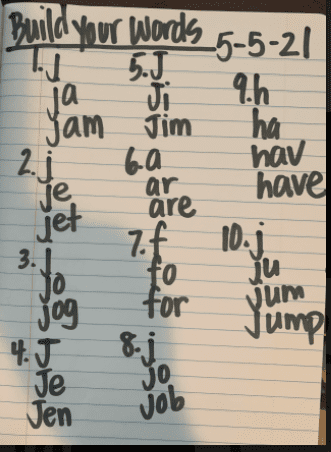 Build Your Words 5-5-21
1. j
ja
jam
2. j
je
jet
3. j
jo
jog
4. J
Je
Jen
5. J
Ji
Jim
6. a
ar
are
7. f
fo
for
8. j
jo
job
9. h
ha
hav
have
10. j
ju
jum
jump